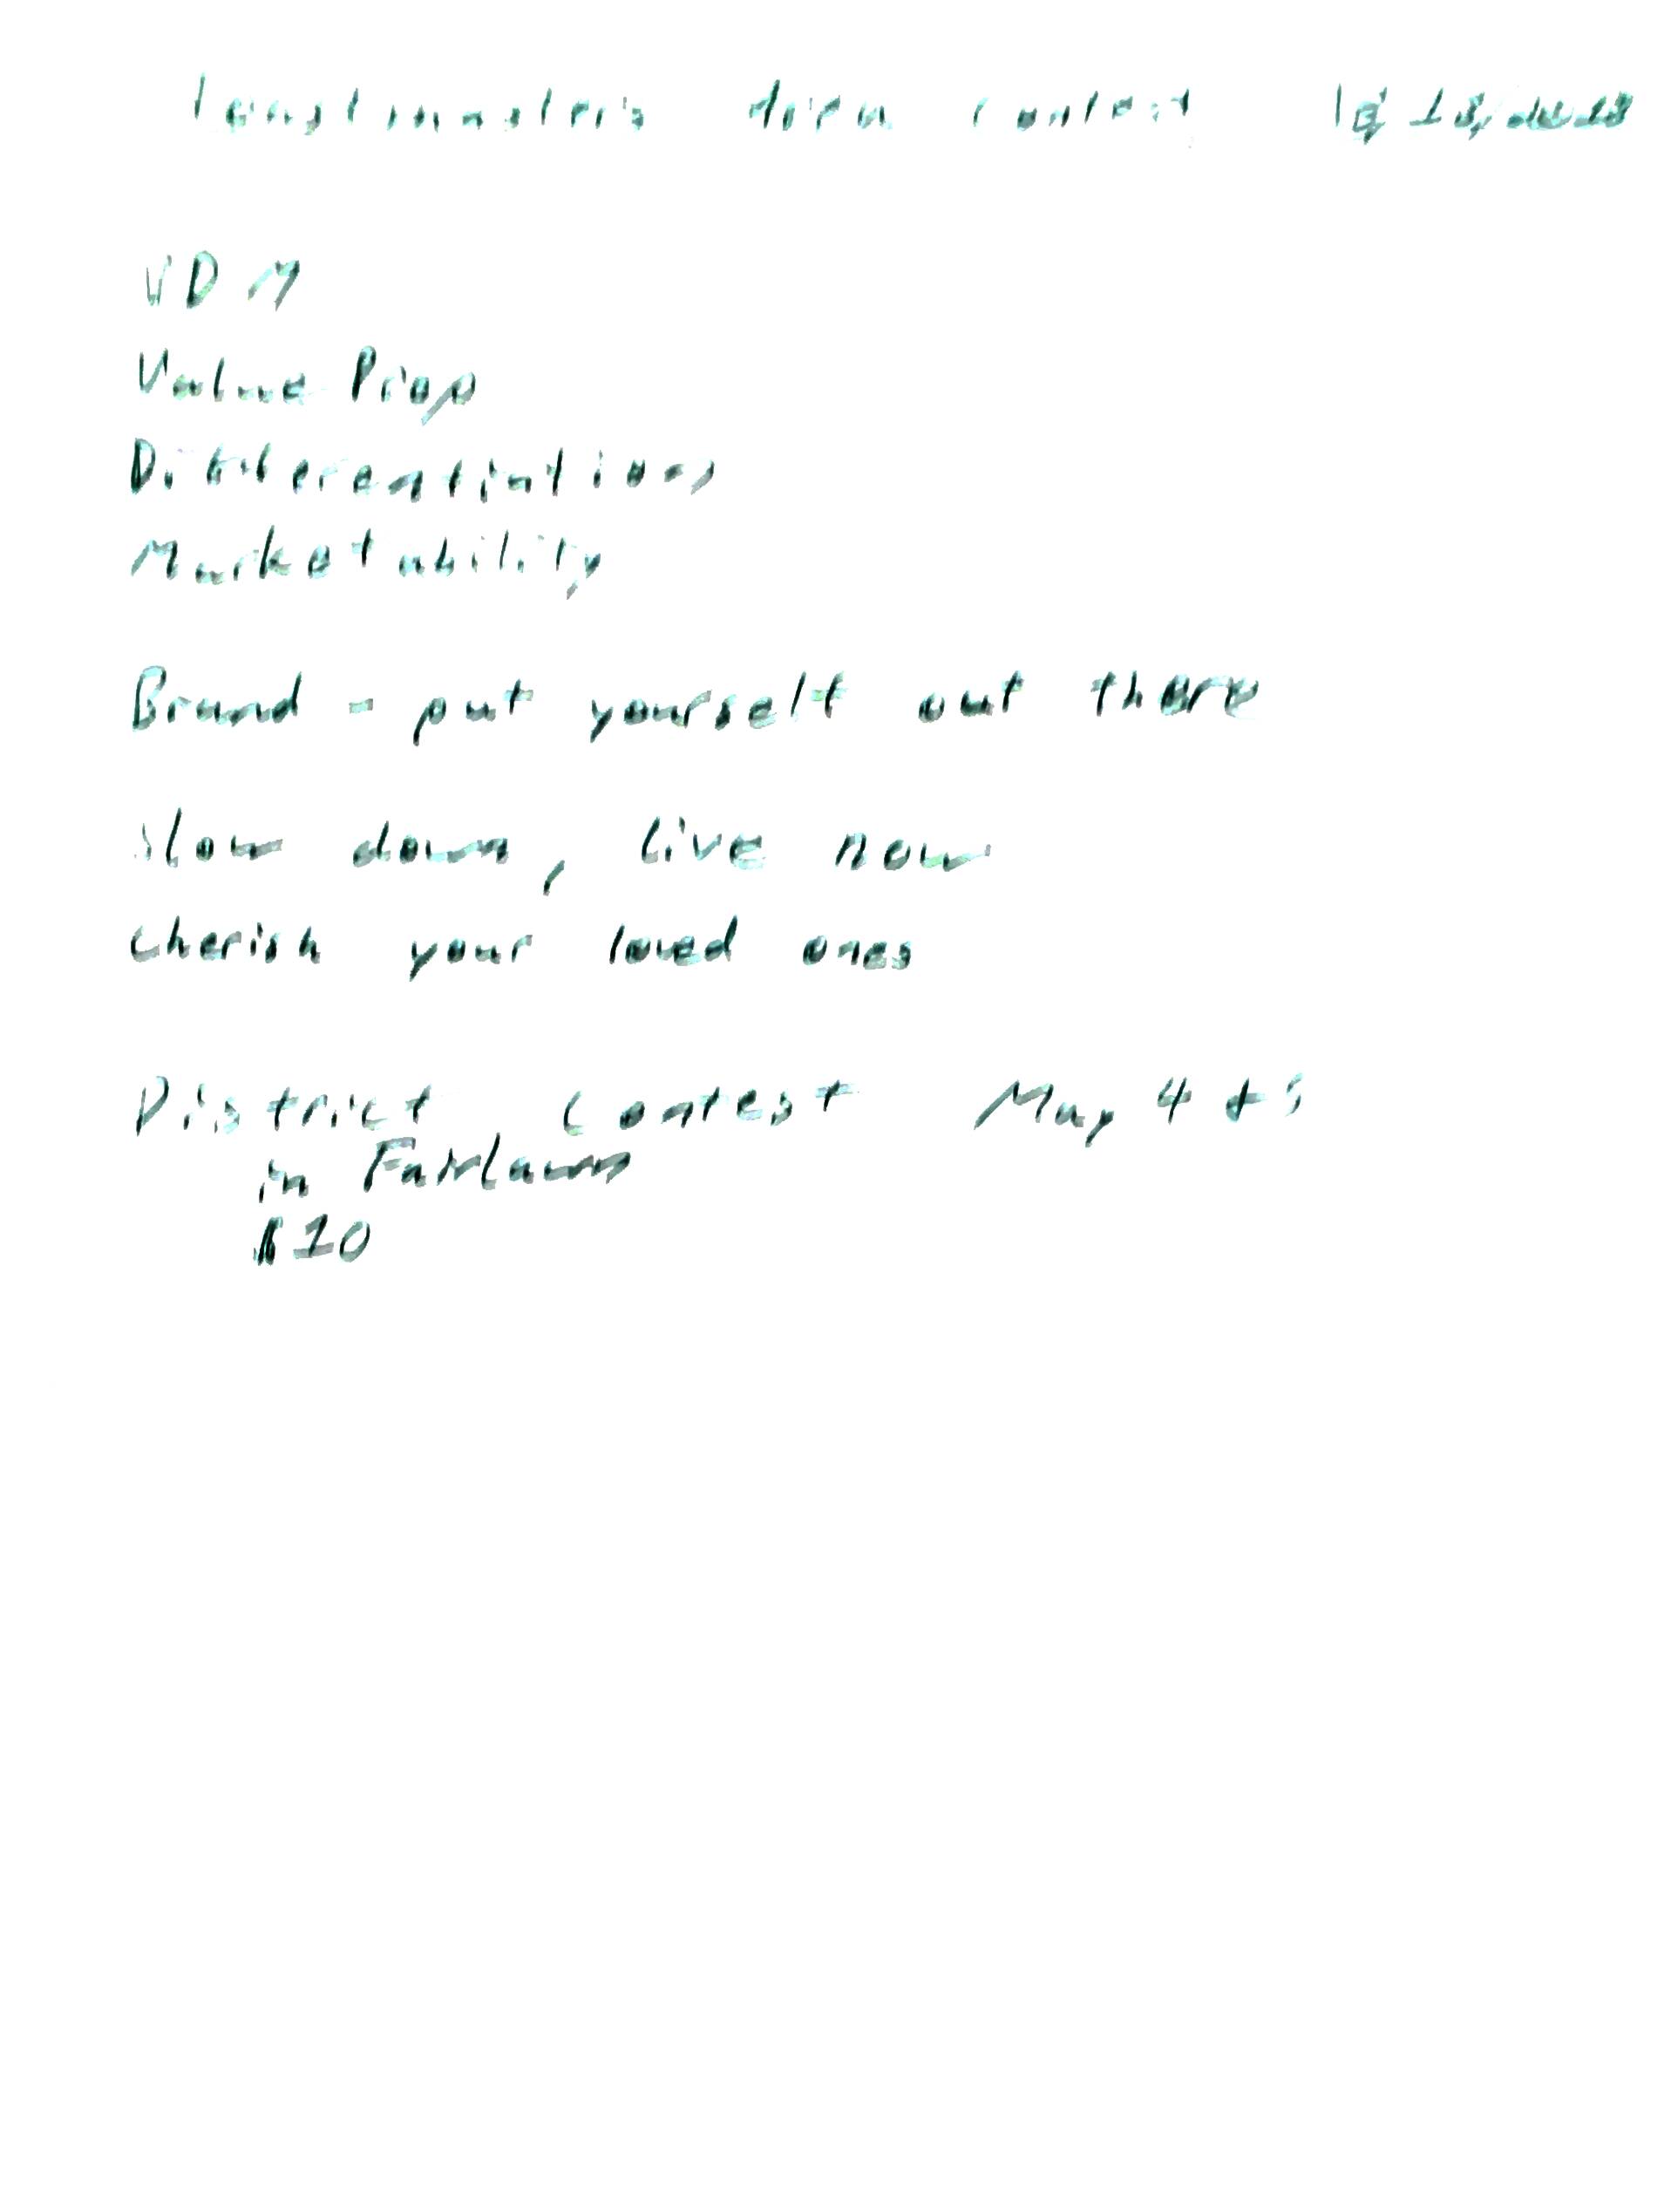 Toastmasters Area Contest
VDM
Value Prop
Differentiations
Marketability
Brand - put yourself out there
Slow down, live now
cherish your loved ones
District Contest May 4 & 5
in Fairlawn
$10